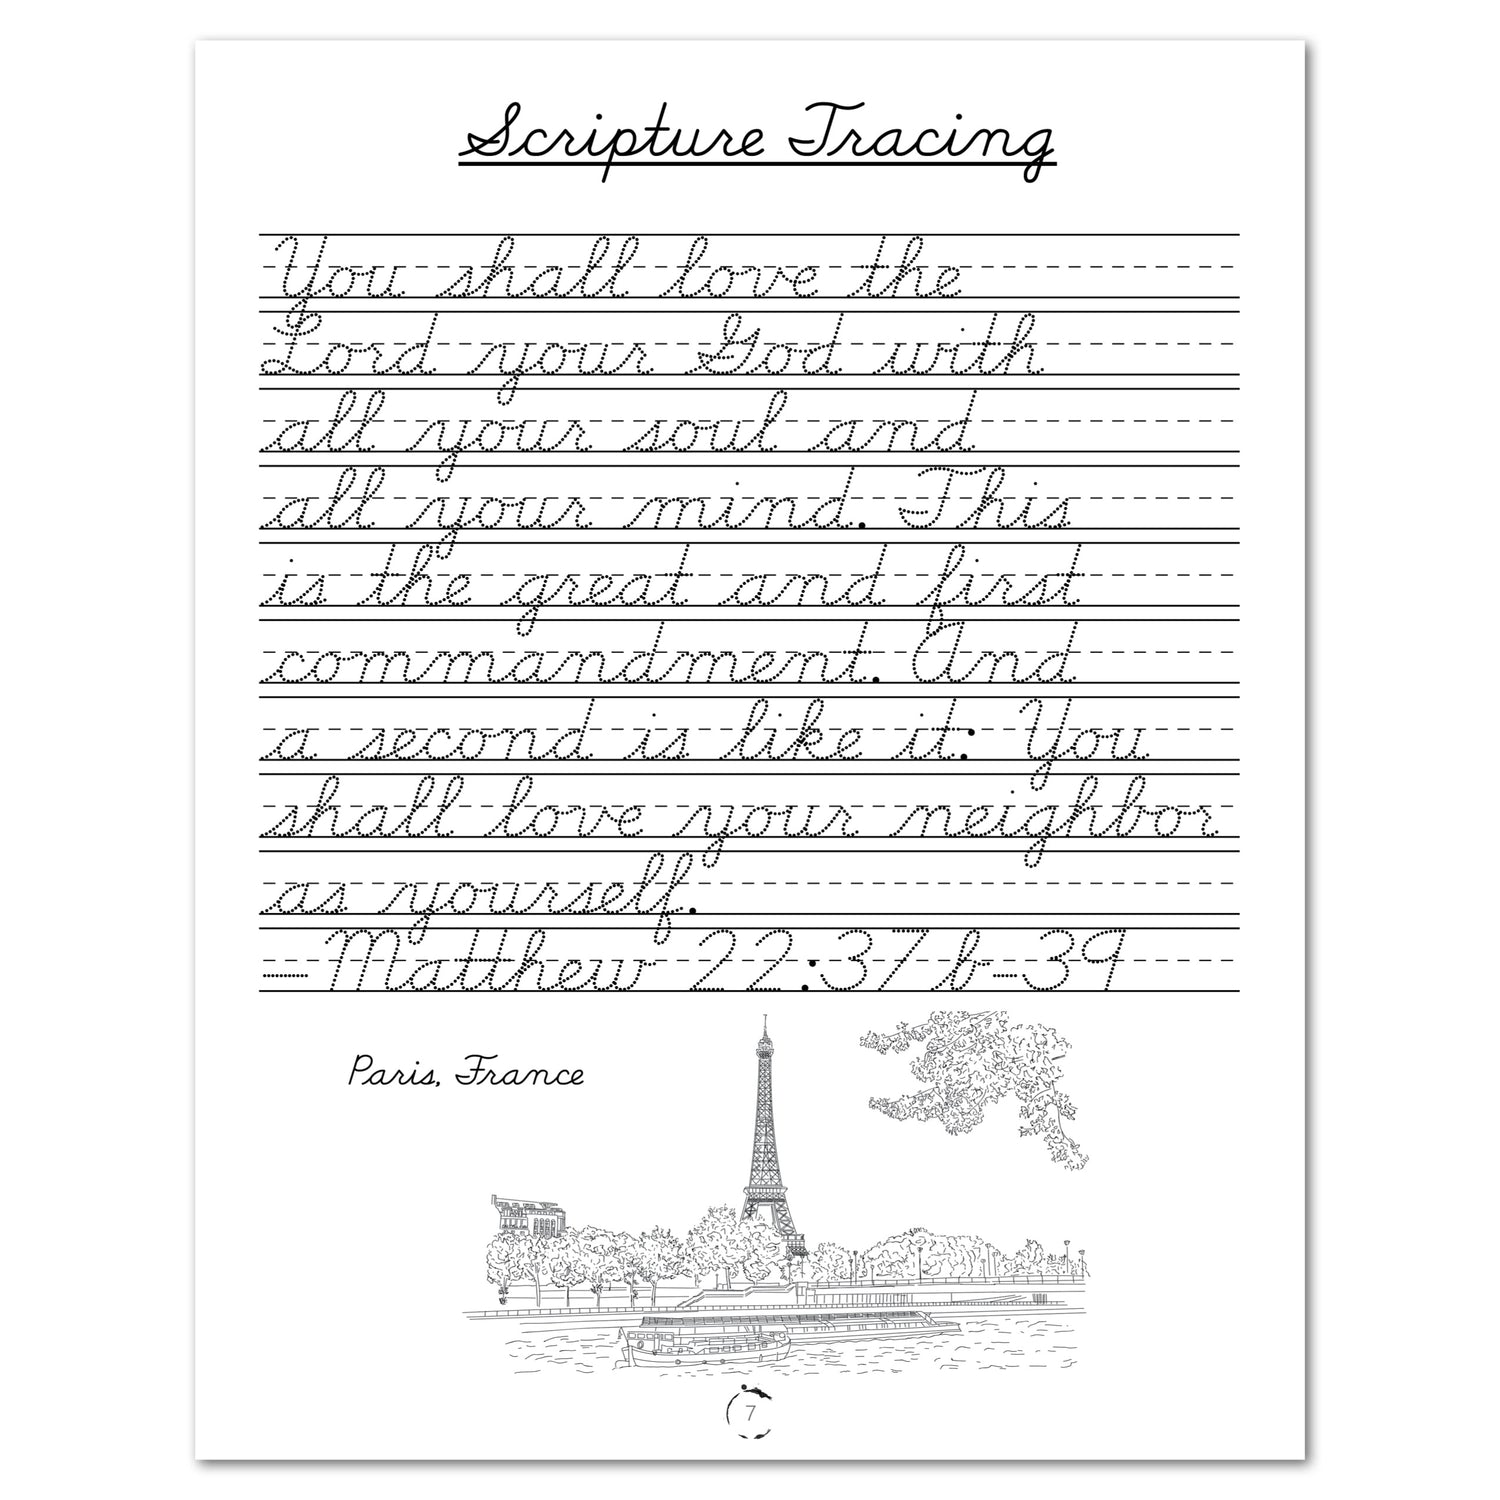 Scripture Tracing
You shall love the
Lord your God with
all your soul and
all your mind. This
is the great and first
commandment. And
a second is like it: You
shall love your neighbor
as yourself.
-Matthew 22:37 b-39
Paris, France
7